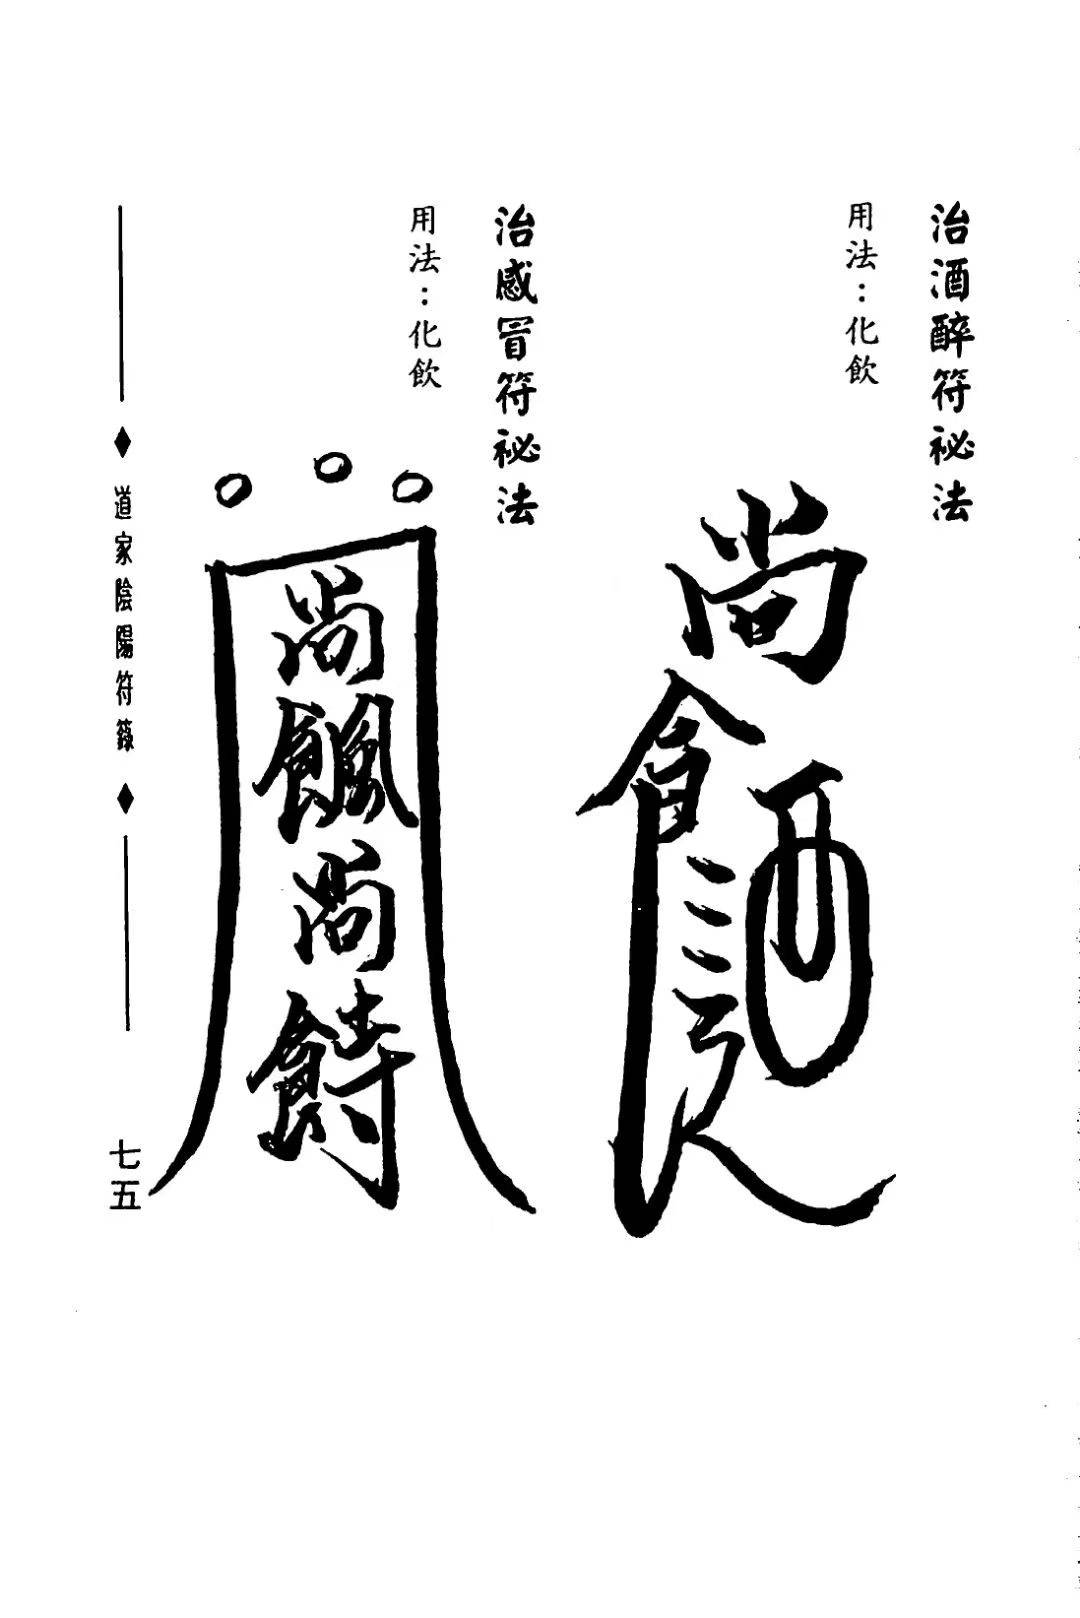 治酒醉符祕法
用法：化飲
尚
治感冒符祕法
用法：化飲
尚
尚
道家陰陽符籙
七五